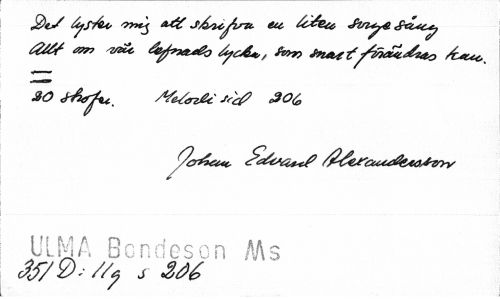 Det lyster mig att skrifva en liten sorgesång
Allt om vår lefnads lycka, som snart förändras kan.
=
20 strofer. Melodi sid 206
Johan Edvard Alexandersson
ULMA Bondeson Ms
351 D: 11q s 206